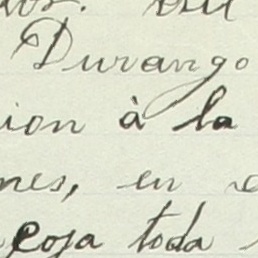 Durango
ion à la
nes, en
coja toda